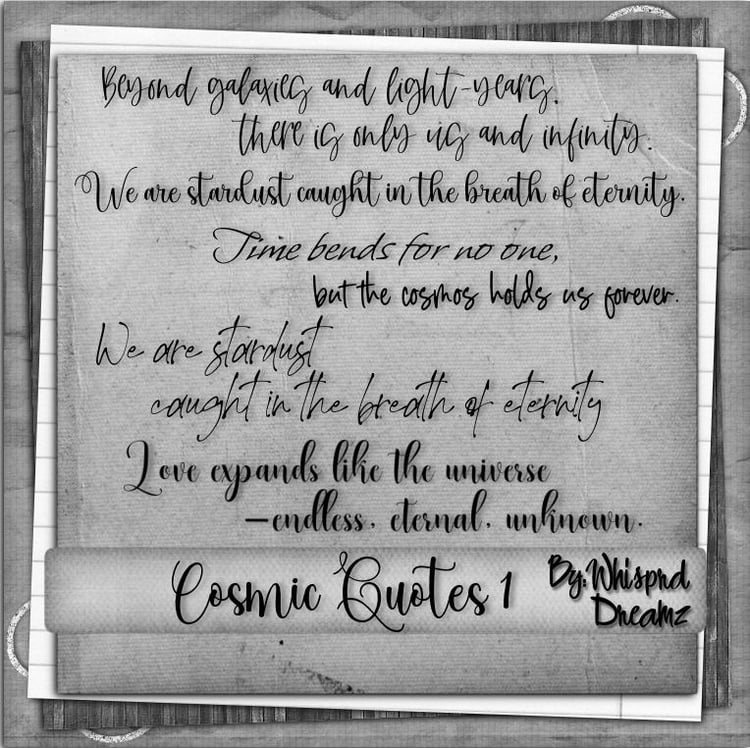 Beyond galaxies and light-years,
there is only us and infinity.
We are stardust caught in the breath of eternity.
Time bends for no one,
but the cosmos holds us forever.
We are stardust
caught in the breath of eternity
Love expands like the universe
—endless, eternal, unknown.
Cosmic Quotes 1
By:Whisprd
Dreamz